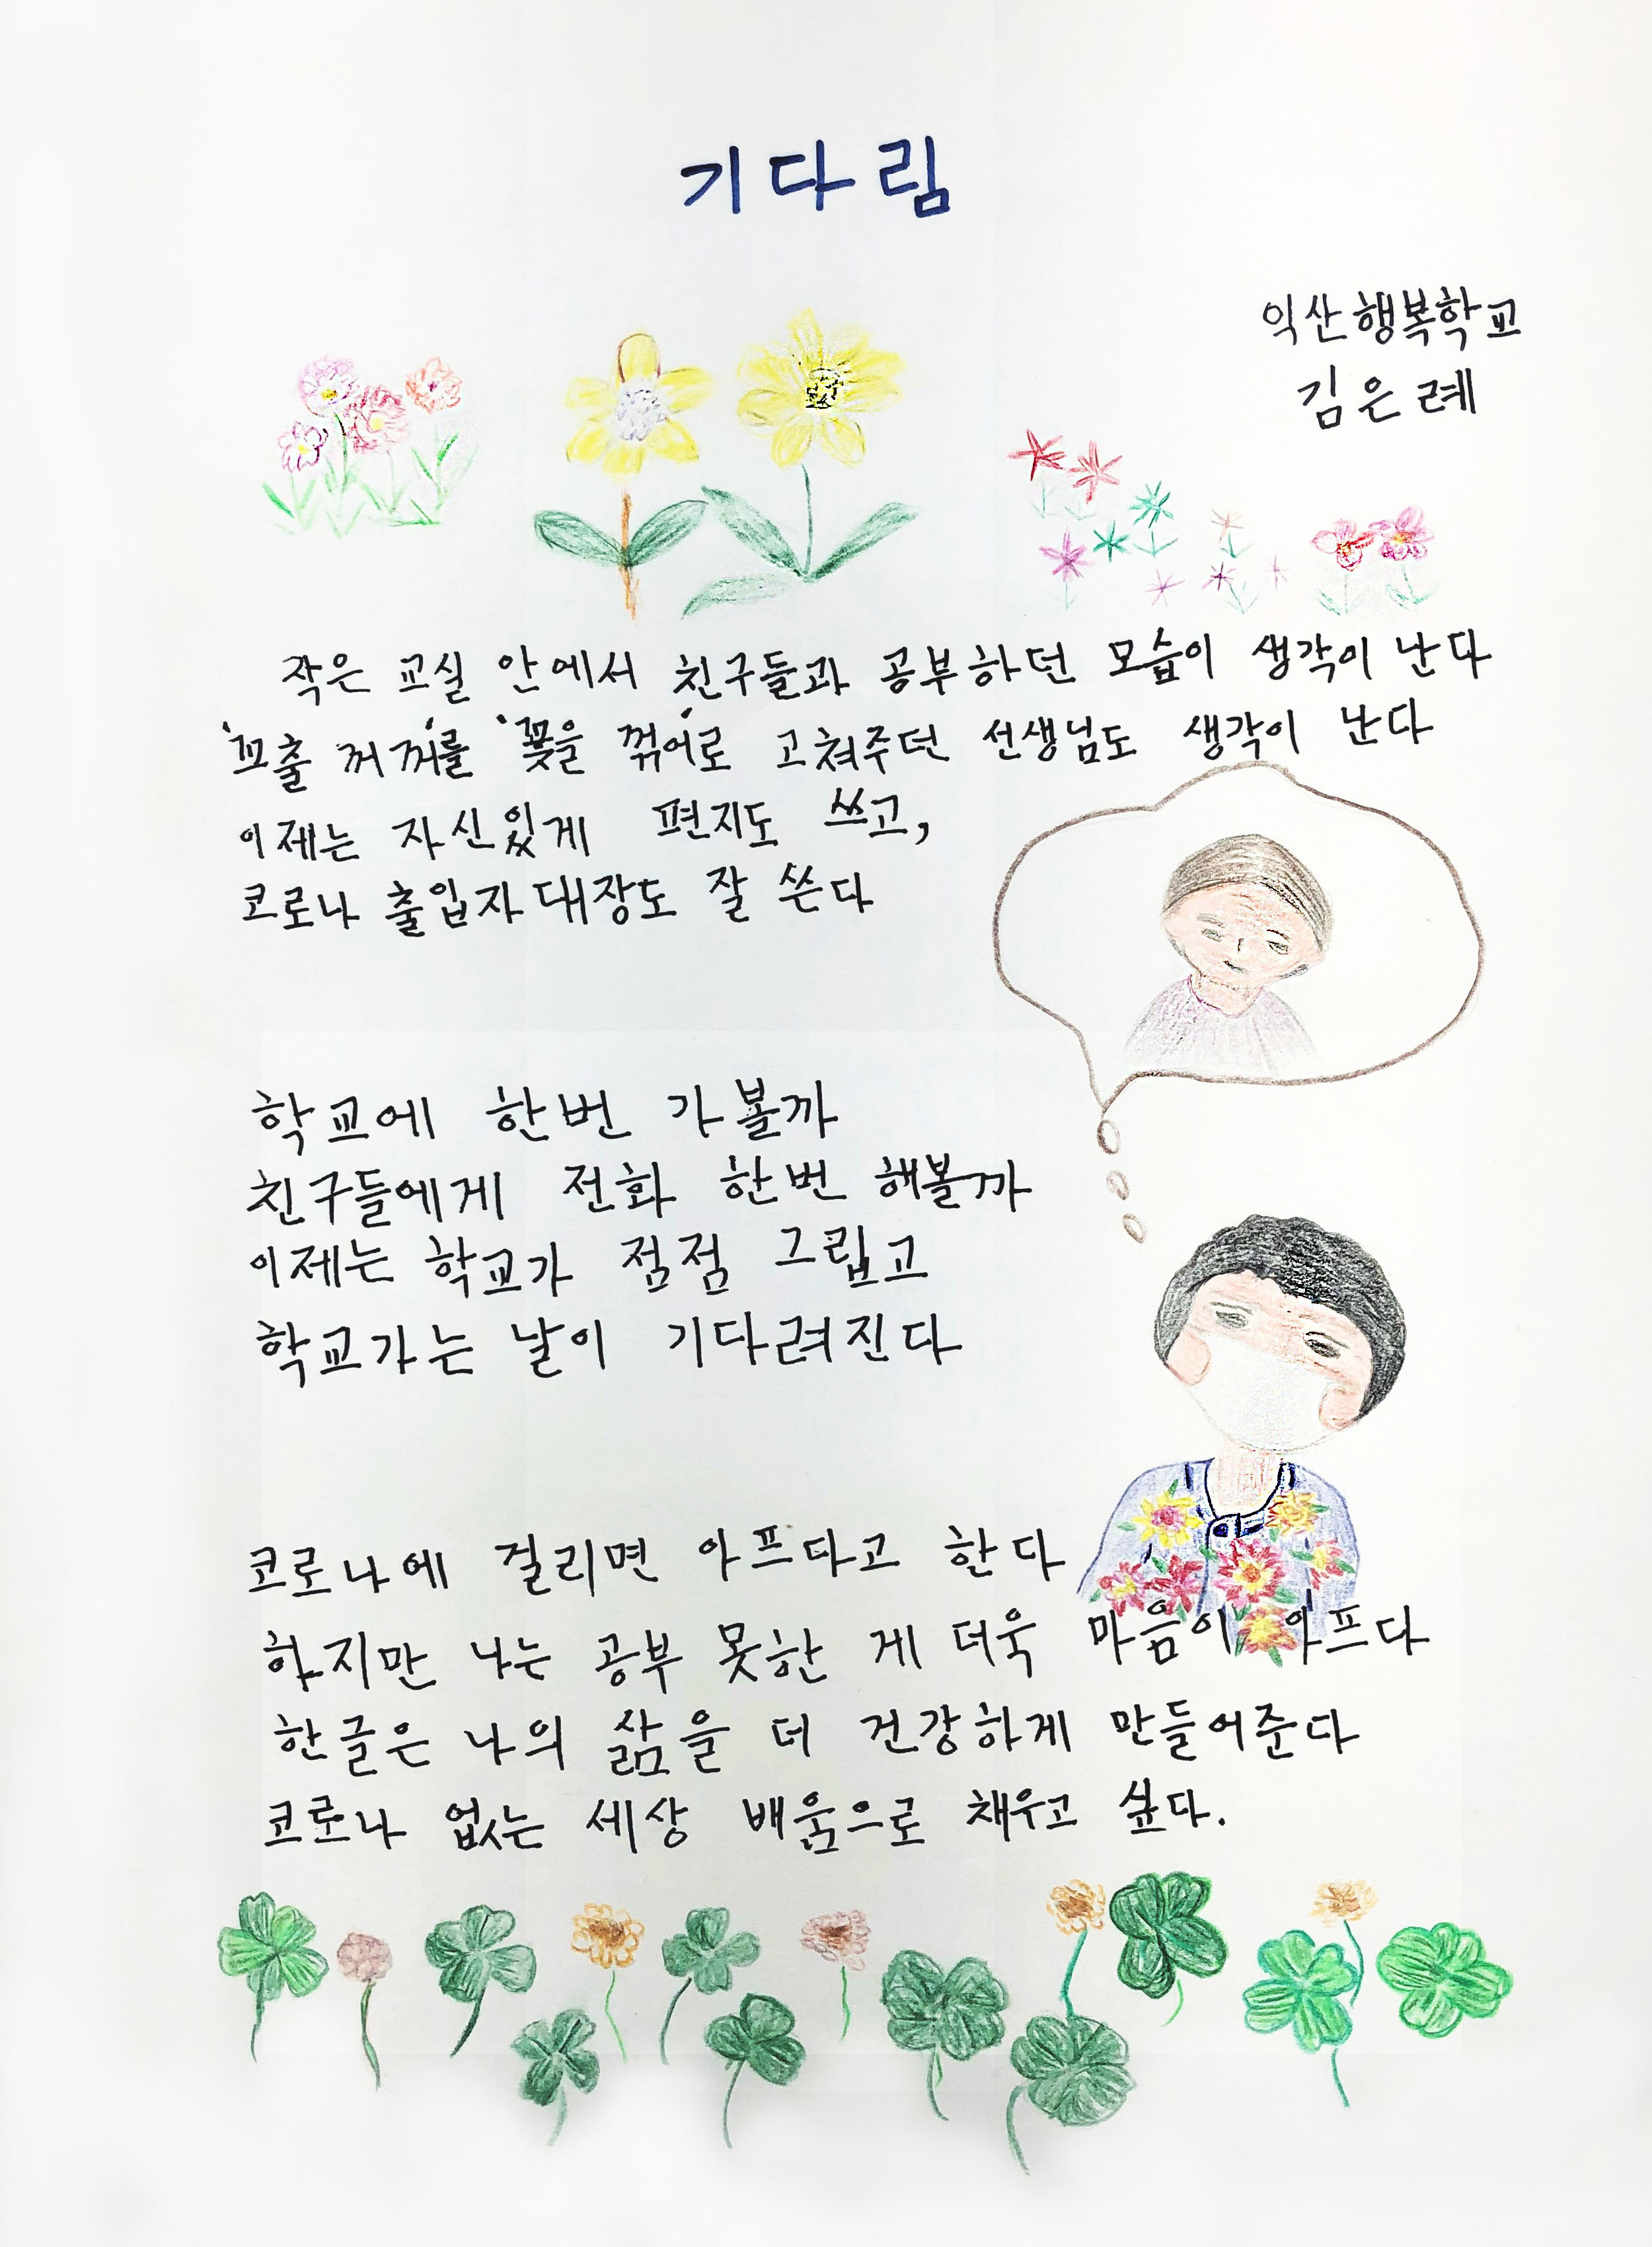 기다림
익산행복학교
김은례
작은 교실 안에서 친구들과 공부하던 모습이 생각이 난다
'꼬출 꺼꺼'를 '꽃을 꺾어'로 고쳐주던 선생님도 생각이 난다
이제는 자신있게 편지도 쓰고,
코로나 출입자 대장도 잘 쓴다
학교에 한번 가볼까
친구들에게 전화 한번 해볼까
이제는 학교가 점점 그립고
학교가는 날이 기다려진다
코로나에 걸리면 아프다고 한다
하지만 나는 공부 못한 게 더욱 마음이 아프다
한글은 나의 삶을 더 건강하게 만들어준다
코로나 없는 세상 배움으로 채우고 싶다.